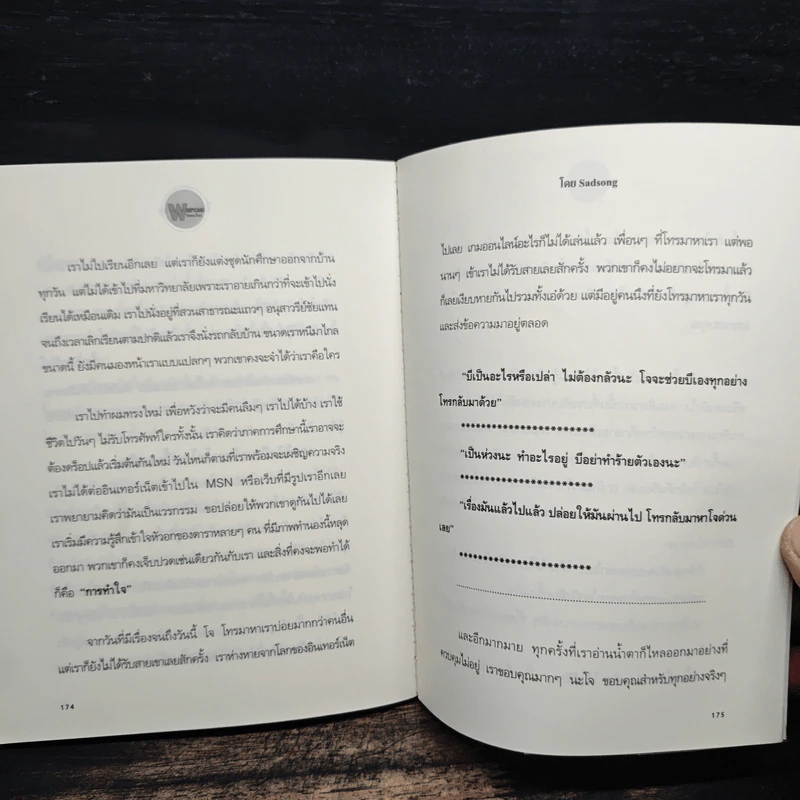 WEBCAM
เราไม่ไปเรียนอีกเลย แต่เราก็ยังแต่งชุดนักศึกษาออกจากบ้าน
ทุกวัน แต่ไม่ได้เข้าไปที่มหาวิทยาลัยเพราะเราอายเกินกว่าที่จะเข้าไปนั่ง
เรียนได้เหมือนเดิม เราไปนั่งอยู่ที่สวนสาธารณะแถวๆ อนุสาวรีย์ชัยแทน
จนถึงเวลาเลิกเรียนตามปกติแล้วเราจึงนั่งรถกลับบ้าน ขนาดเราหนีมาไกล
ขนาดนี้ ยังมีคนมองหน้าเราแบบแปลกๆ พวกเขาคงจะจำได้ว่าเราคือใคร
เราไปทำผมทรงใหม่ เพื่อหวังว่าจะมีคนลืมๆ เราไปได้บ้าง เราใช้
ชีวิตไปวันๆ ไม่รับโทรศัพท์ใครทั้งนั้น เราคิดว่าภาคการศึกษานี้เราอาจจะ
ต้องดร็อปแล้วเริ่มต้นกันใหม่ วันไหนก็ตามที่เราพร้อมจะเผชิญความจริง
เราไม่ได้ต่ออินเทอร์เน็ตเข้าไปใน MSN หรือเว็บที่มีรูปเราอีกเลย
เราพยายามคิดว่ามันเป็นเวรกรรม ขอปล่อยให้พวกเขาดูกันไปได้เลย
เราเริ่มมีความรู้สึกเข้าใจหัวอกของดาราหลายๆ คน ที่มีภาพทำนองนี้หลุด
ออกมา พวกเขาก็คงเจ็บปวดเช่นเดียวกันกับเรา และสิ่งที่คงจะพอทำได้
ก็คือ “การทำใจ”
จากวันที่มีเรื่องจนถึงวันนี้ โจ โทรมาหาเราบ่อยมากกว่าคนอื่น
แต่เราก็ยังไม่ได้รับสายเขาเลยสักครั้ง เราห่างหายจากโลกของอินเทอร์เน็ต
174
โดย Sadsong
ไปเลย เกมออนไลน์อะไรก็ไม่ได้เล่นแล้ว เพื่อนๆ ที่โทรมาหาเรา แต่พอ
นานๆ เข้าเราไม่ได้รับสายเลยสักครั้ง พวกเขาก็คงไม่อยากจะโทรมาแล้ว
ก็เลยเงียบหายกันไปรวมทั้งเอ๋ด้วย แต่มีอยู่คนนึงที่ยังโทรมาหาเราทุกวัน
และส่งข้อความมาอยู่ตลอด
“บีเป็นอะไรหรือเปล่า ไม่ต้องกลัวนะ โจจะช่วยบีเองทุกอย่าง
โทรกลับมาด้วย”
************************
“เป็นห่วงนะ ทำอะไรอยู่ บีอย่าทำร้ายตัวเองนะ”
************************
“เรื่องมันแล้วไปแล้ว ปล่อยให้มันผ่านไป โทรกลับมาหาโจด่วน
เลย”
************************
และอีกมากมาย ทุกครั้งที่เราอ่านน้ำตาก็ไหลออกมาอย่างที่
ควบคุมไม่อยู่ เราขอบคุณมากๆ นะโจ ขอบคุณสำหรับทุกอย่างจริงๆ
175